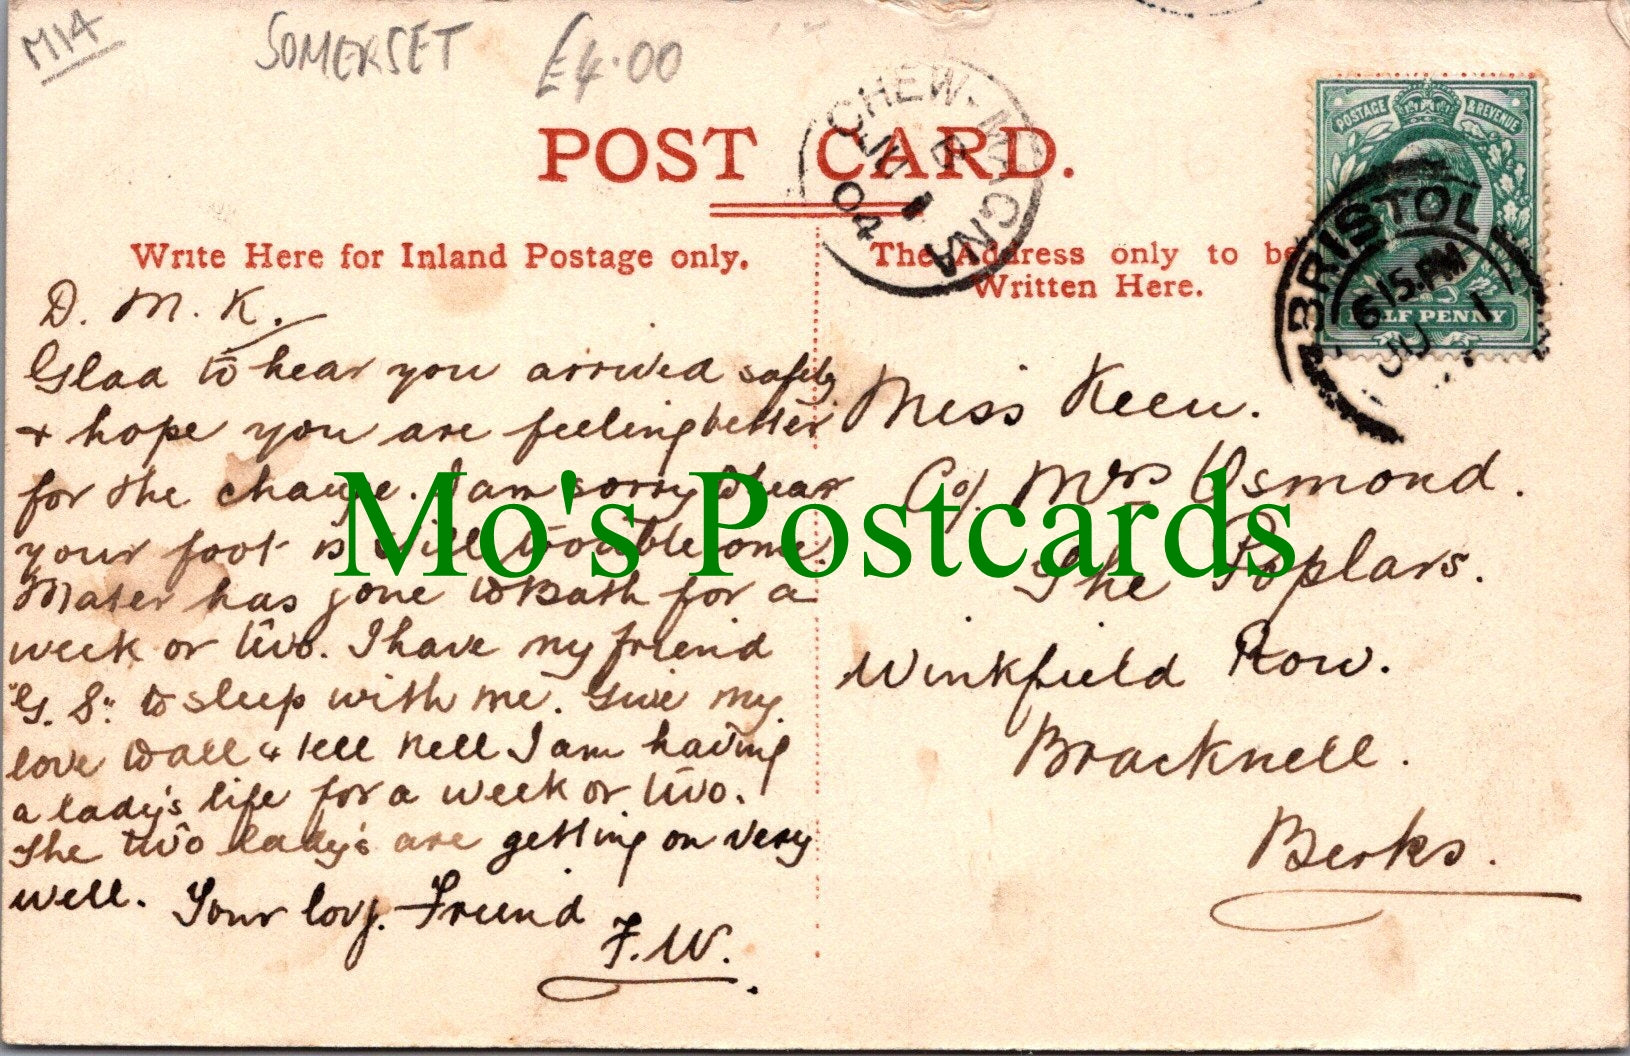 M14
SOMERSET £4.00
POST CARD.
CHEW-MAGNA
JU 1
04
POSTAGE & REVENUE
HALF PENNY
BRISTOL
6 15. PM
JU 1
Write Here for Inland Postage only.
The Address only to be
Written Here.
D. M. K.
Glad to hear you arrived safely
+ hope you are feeling better
for the change. I am sorry to hear
your foot is still troublesome.
Mater has gone to Bath for a
week or two. I have my friend
"G. S." to sleep with me. Give my
love to all & tell Nell I am having
a lady's life for a week or two.
The two lady's are getting on very
well. Your lovg. Friend
F. W.
Miss Keen.
C/o/. Mrs Osmond.
The Poplars.
Winkfield Row.
Bracknell.
Berks.
Mo's Postcards